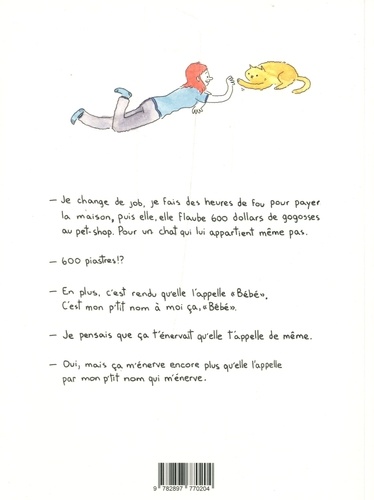 — Je change de job, je fais des heures de fou pour payer
la maison, puis elle, elle flaube 600 dollars de gogosses
au pet-shop. Pour un chat qui lui appartient même pas.
— 600 piastres!?
— En plus, c'est rendu qu'elle l'appelle «Bébé».
C'est mon p'tit nom à moi ça, «Bébé».
— Je pensais que ça t'énervait qu'elle t'appelle de même.
— Oui, mais ça m'énerve encore plus qu'elle l'appelle
par mon p'tit nom qui m'énerve.
9 782897 770204